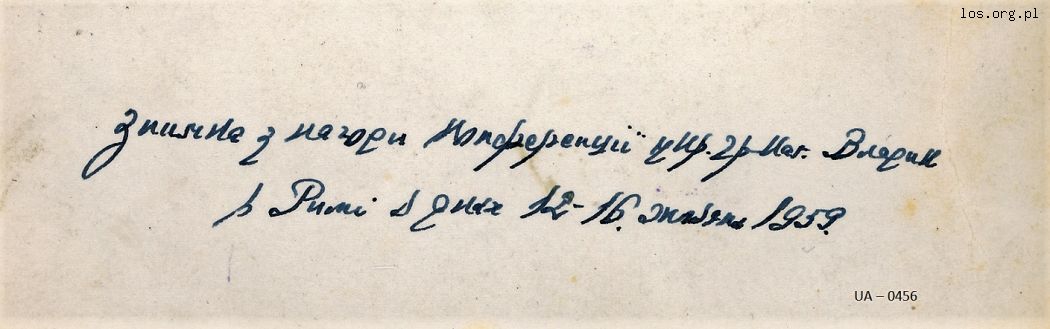 los.org.pl
Знимка з нагоди Конференції укр. гр-кат. Владик
в Римі в днях 12-16. жовтня 1959.
UA – 0456